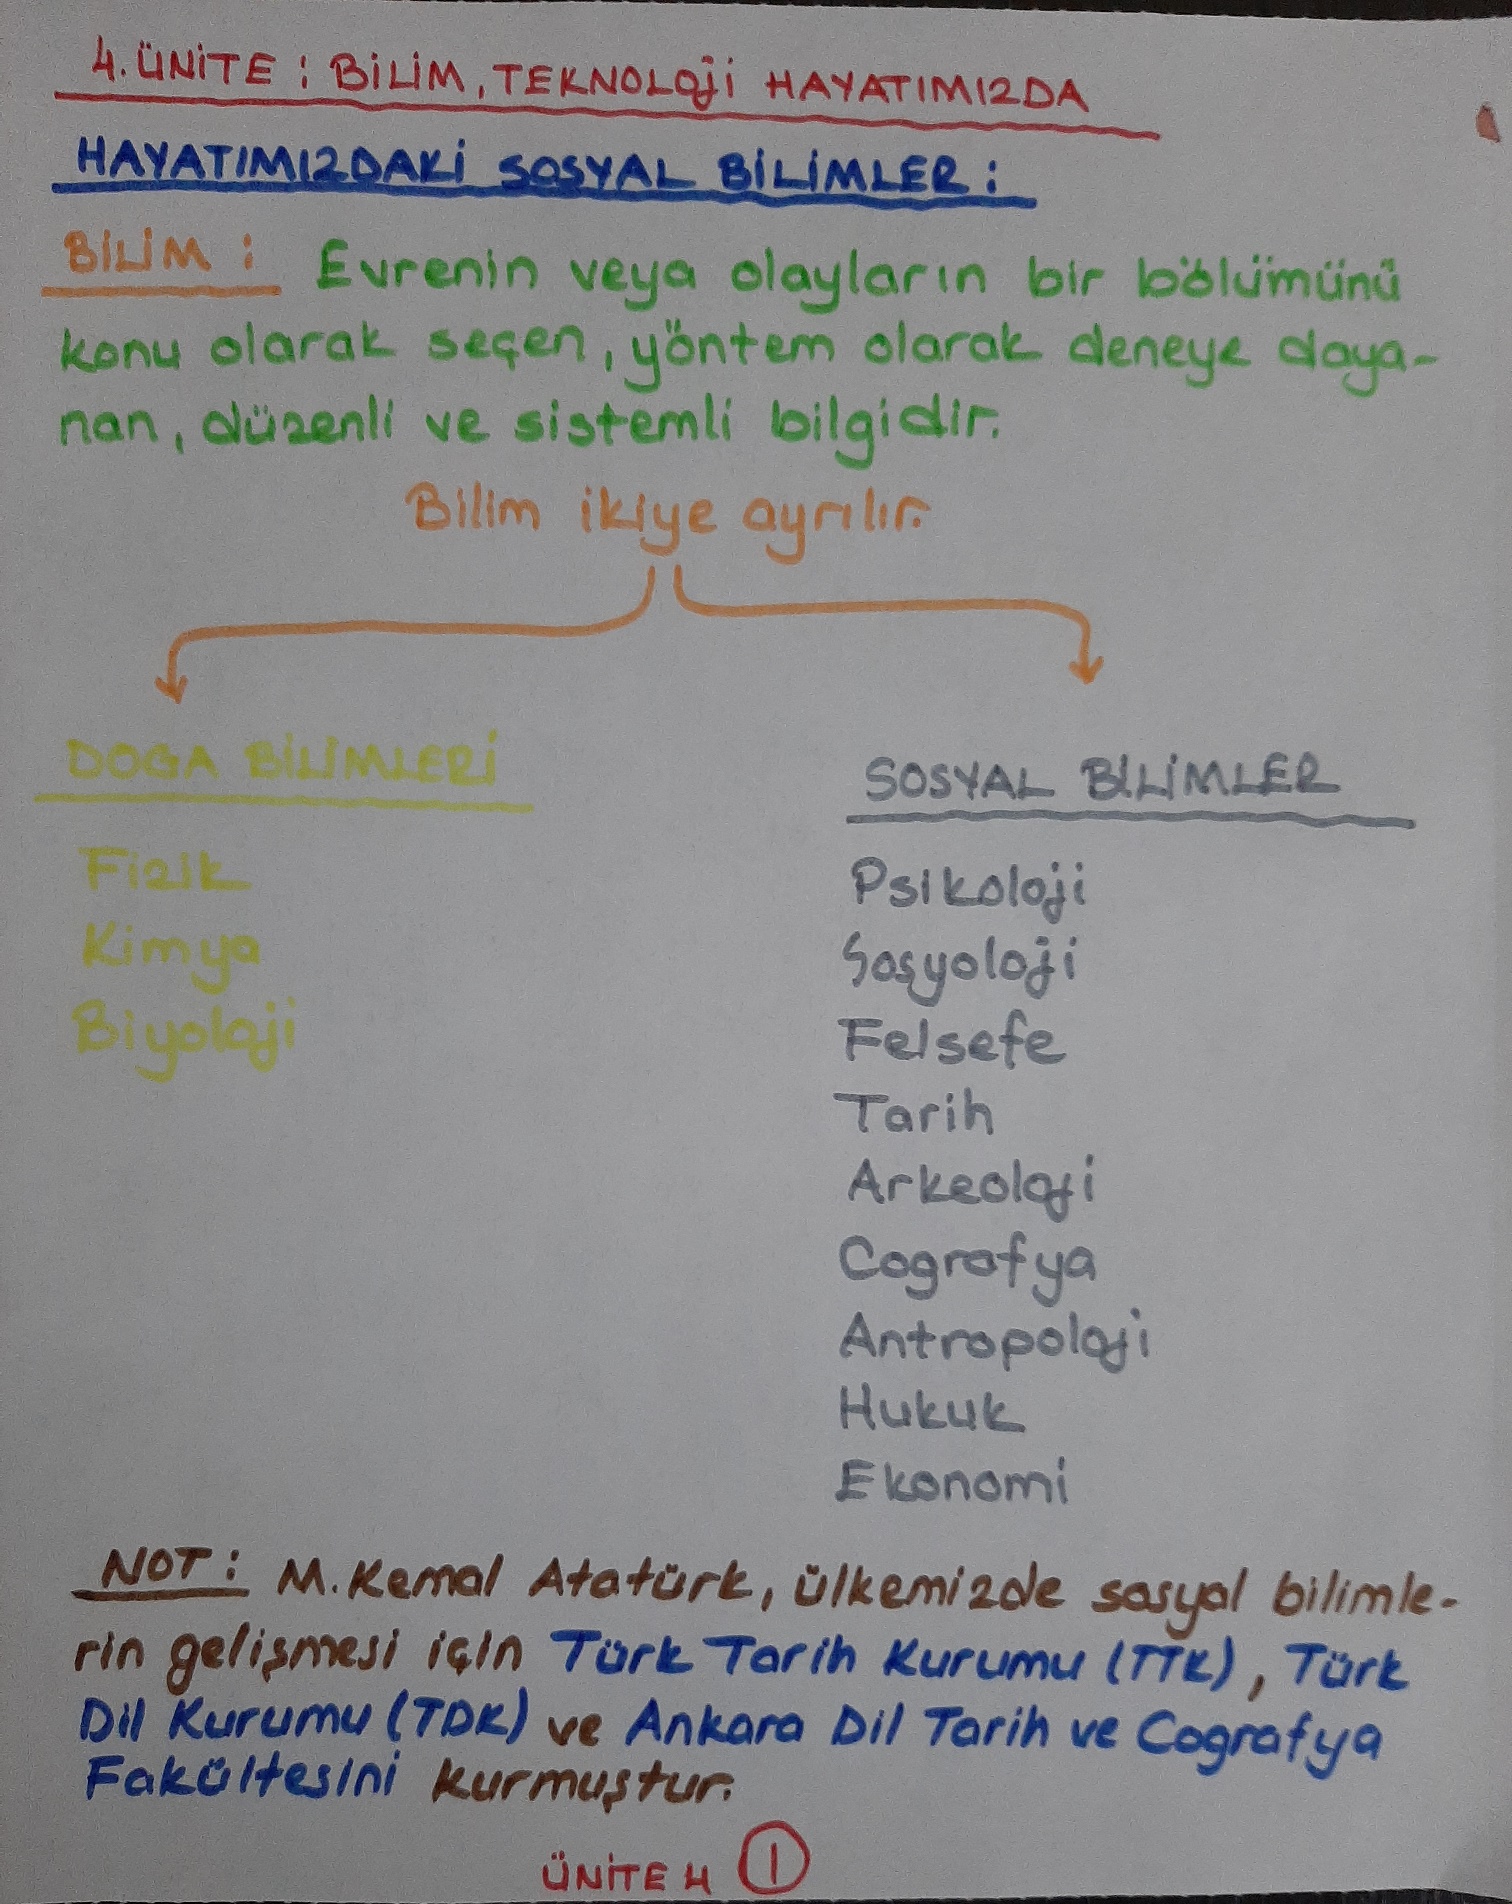 4. ÜNİTE : BİLİM, TEKNOLOJİ HAYATIMIZDA
HAYATIMIZDAKİ SOSYAL BİLİMLER :
BİLİM : Evrenin veya olayların bir bölümünü
konu olarak seçen, yöntem olarak deneye daya-
nan, düzenli ve sistemli bilgidir.
Bilim ikiye ayrılır.
DOGA BİLİMLERİ
SOSYAL BİLİMLER
Fizik
Kimya
Biyoloji
Psikoloji
Sosyoloji
Felsefe
Tarih
Arkeoloji
Cografya
Antropoloji
Hukuk
Ekonomi
NOT : M. Kemal Atatürk, ülkemizde sosyal bilimle-
rin gelişmesi için Türk Tarih Kurumu (TTK), Türk
Dil Kurumu (TDK) ve Ankara Dil Tarih ve Cografya
Fakültesini kurmuştur.
ÜNİTE 4 1